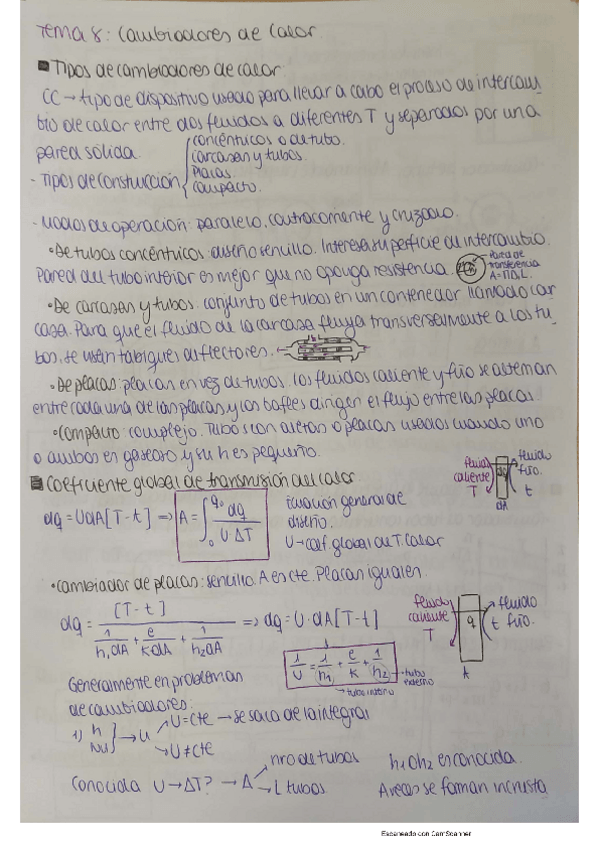 Tema 8: Cambiadores de Calor
Tipos de cambiadores de calor
CC → tipo de dispositivo usado para llevar a cabo el proceso de intercam
bio de calor entre dos fluidos a diferentes T y separados por una
pared sólida.
concéntricos o de tubo.
carcasas y tubos.
- Tipos de construcción
Placas.
compacto.
- Modos de operación: paralelo, contracorriente y cruzado.
• De tubos concéntricos: diseño sencillo. Interesa superficie de intercambio.
Pared del tubo interior es mejor que no oponga resistencia.
Área de
transferencia
A=ΠD.L.
• De carcasas y tubos: conjunto de tubos en un contenedor llamado car
casa. Para que el fluido de la carcasa fluya transversalmente a los tu
bos, se usan tabiques deflectores.
• De placas: placas en vez de tubos. Los fluidos caliente y frío se alternan
entre cada una de las placas y los bafles dirigen el flujo entre las placas
• Compacto: complejo. Tubos con aletas o placas usados cuando uno
o ambos es gaseoso y su h es pequeño.
Coeficiente global de transmisión del calor
fluido
caliente
T
fluido
frío.
t
dA
dq = U dA [T - t] ⇒ A = ∫₀^q dq / U ΔT
Ecuación general de
diseño.
U → coef. global de T. calor
• Cambiador de placas: sencillo. A es cte. Placas iguales.
dq = [T - t] / (1/h₁dA + e/KdA + 1/h₂dA) ⇒ dq = U · dA [T - t]
fluido
caliente
T
q
fluido
frío.
t
A
1/U = 1/h₁ + e/K + 1/h₂
→ tubo
externo
→ tubo interno
Generalmente en problemas
de cambiadores:
1) h
Nu
→ U
U = cte → se saca de la integral
U ≠ cte
Conocida U → ΔT? → A
nro de tubos
L tubos
h₁ o h₂ es conocida.
A veces se forman incrusta
Escaneado con CamScanner